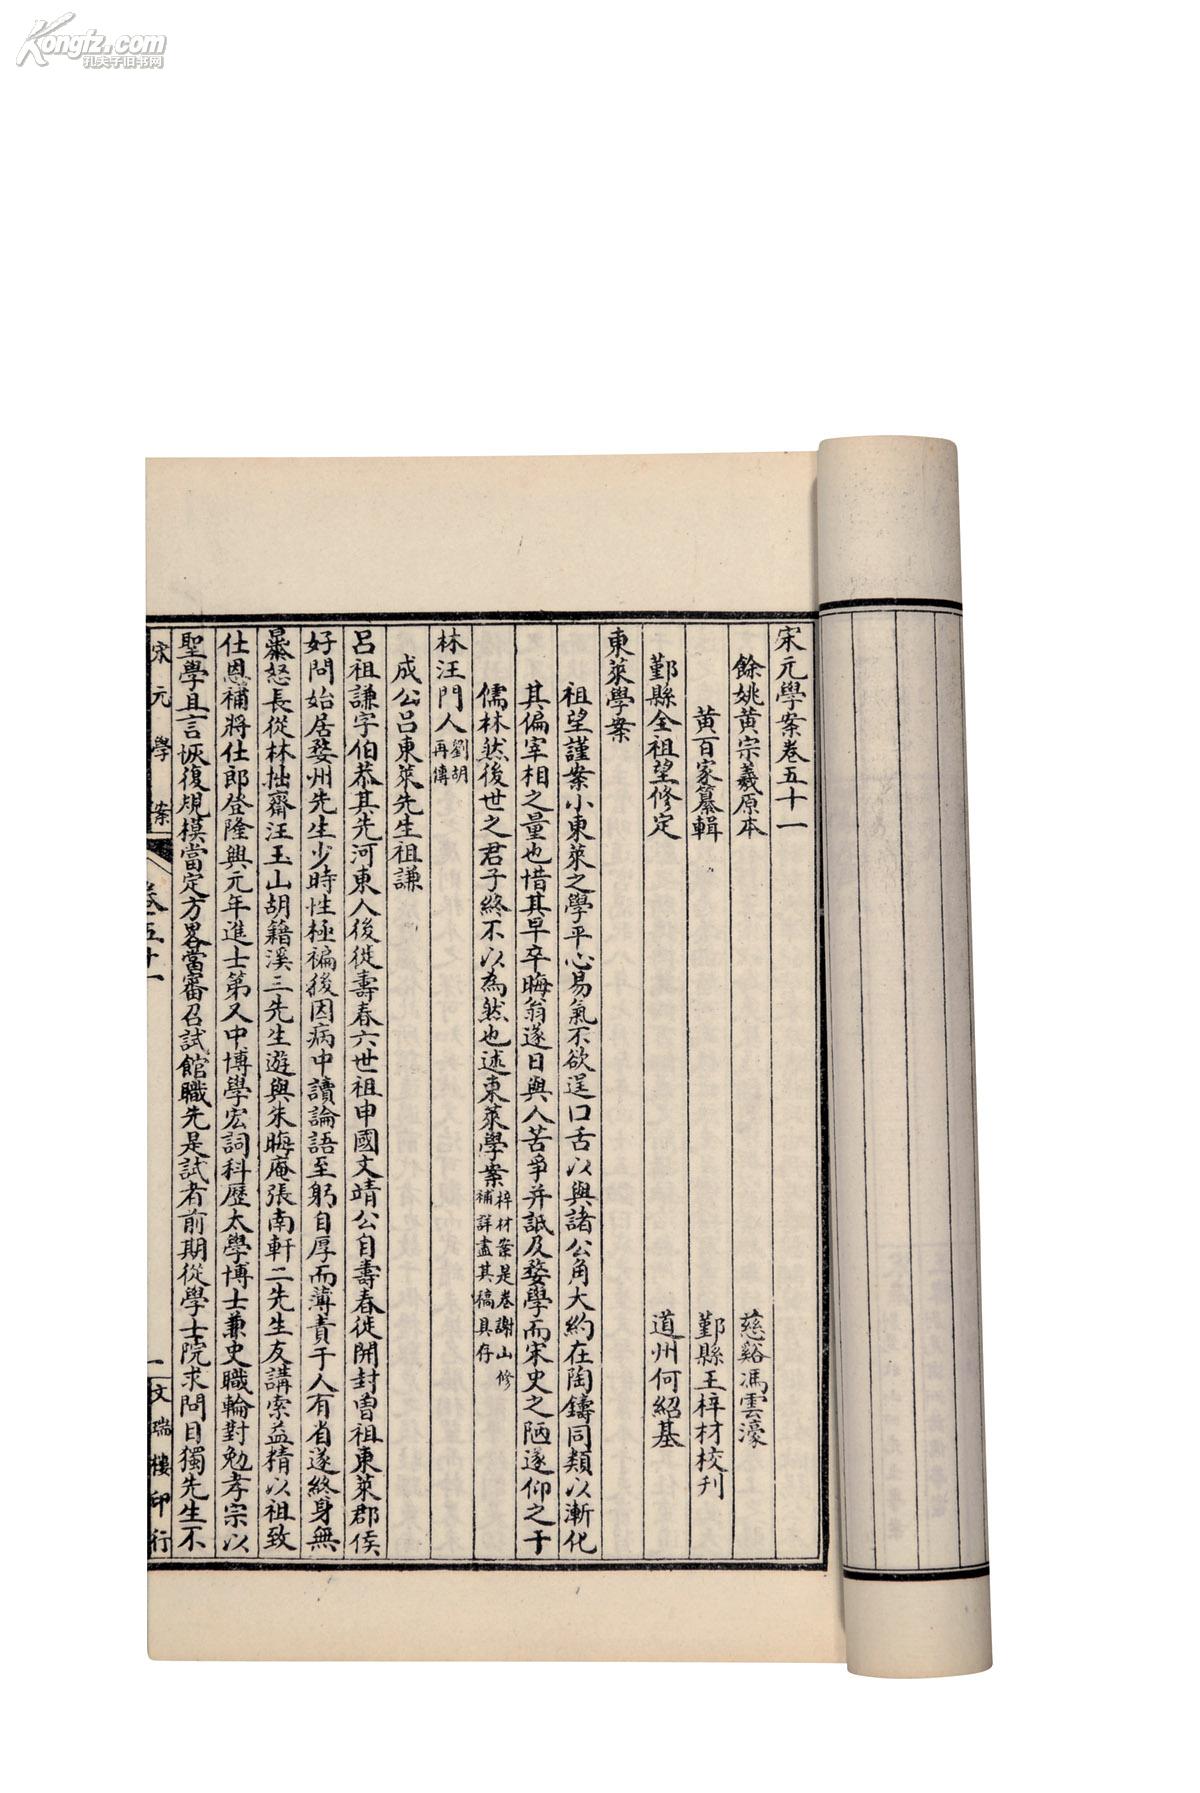 Kongfz.com
孔夫子旧书网
宋元學案卷五十一
餘姚黃宗羲原本
慈谿馮雲濠
黃百家纂輯
鄞縣王梓材校刋
鄞縣全祖望修定
道州何紹基
東萊學案
祖望謹案小東萊之學平心易氣不欲逞口舌以與諸公角大約在陶鑄同類以漸化
其偏宰相之量也惜其早卒晦翁遂日與人苦爭并詆及婺學而宋史之陋遂仰之于
儒林然後世之君子終不以為然也述東萊學案
梓材案是卷謝山修
補詳盡其稿具存
林汪門人
劉胡
再傳
成公呂東萊先生祖謙
呂祖謙字伯恭其先河東人後徙壽春六世祖申國文靖公自壽春徙開封曾祖東萊郡侯
好問始居婺州先生少時性極褊後因病中讀論語至躬自厚而薄責于人有省遂終身無
暴怒長從林拙齋汪玉山胡籍溪三先生遊與朱晦庵張南軒二先生友講索益精以祖致
仕恩補將仕郎登隆興元年進士第又中博學宏詞科歷太學博士兼史職輪對勉孝宗以
聖學且言恢復規模當定方畧當審召試館職先是試者前期從學士院求問目獨先生不
宋元學案
卷五十一
一
文瑞樓印行